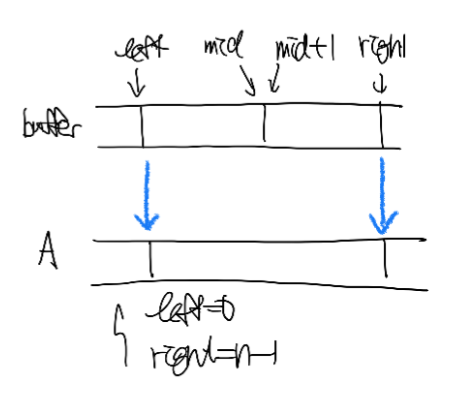 left mid mid+1 right
buffer
A
left=0
right=n-1